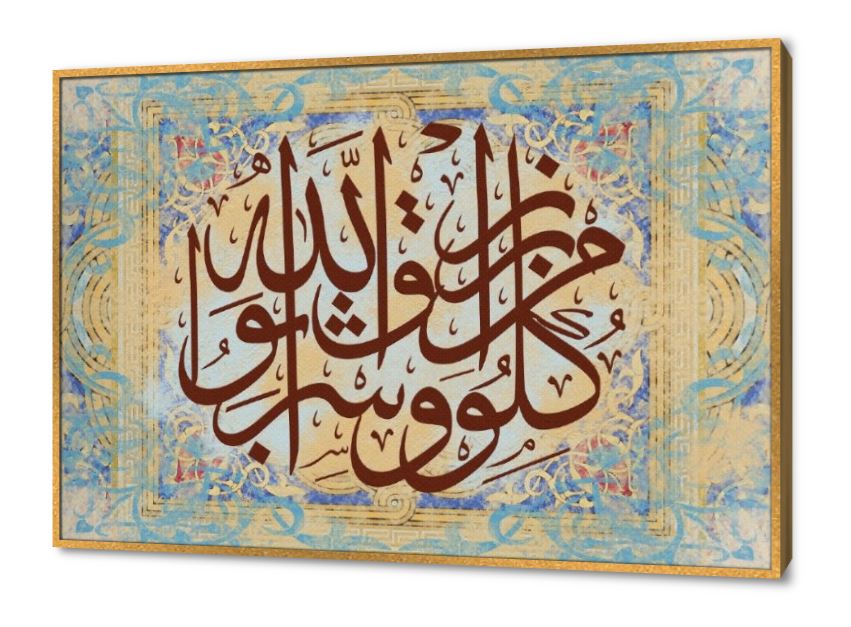 كُلُوا وَاشْرَبُوا مِن رِّزْقِ اللَّهِ